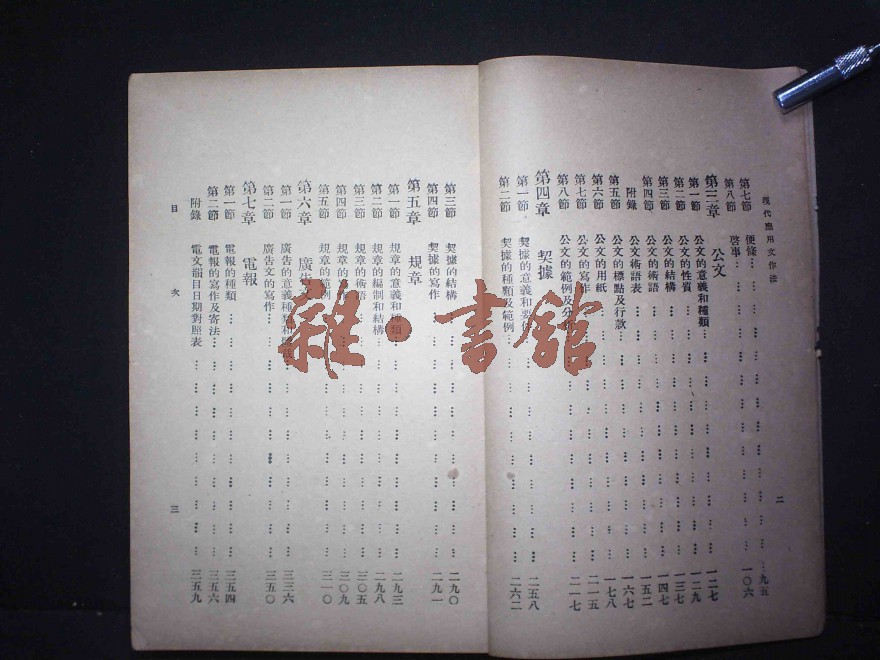 現代應用文作法
二
第七節 便條 … 九五
第八節 啓事 … 一〇六
第三章 公文
第一節 公文的意義和種類 … 一二七
第二節 公文的性質 … 一二九
第三節 公文的結構 … 一三七
第四節 公文的術語 … 一四七
附錄 公文術語表 … 一五二
第五節 公文的標點及行款 … 一六七
第六節 公文的用紙 … 一七八
第七節 公文的寫作 … 二一五
第八節 公文的範例及分 … 二一七
第四章 契據
第一節 契據的意義和要 … 二五八
第二節 契據的種類及範例 … 二六二
第三節 契據的結構 … 二九〇
第四節 契據的寫作 … 二九一
第五章 規章
第一節 規章的意義和種類 … 二九三
第二節 規章的編制和結構 … 二九八
第三節 規章的術語 … 三〇五
第四節 規章的 … 三〇九
第五節 規章的範例 … 三一〇
第六章 廣告
第一節 廣告的意義種類和 … 三三六
第二節 廣告文的寫作 … 三五〇
第七章 電報
第一節 電報的種類 … 三五四
第二節 電報的寫作及寄法 … 三五六
附錄 電文韻目日期對照表 … 三五九
目 次
三
雜·書館